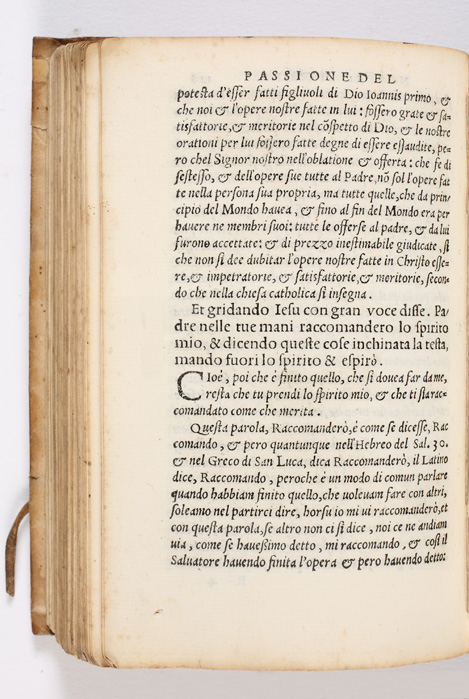 PASSIONE DEL
potesta d'esser fatti figliuoli di Dio Ioannis primo, &
che noi & l'opere nostre fatte in lui: fossero grate & sa-
tisfattorie, & meritorie nel cõspetto di Dio, & le nostre
orationi per lui fossero fatte degne di essere essaudite, pe-
ro chel Signor nostro nell'oblatione & offerta: che fe di
sestesso, & dell'opere sue tutte al Padre, nõ sol l'opere fat
te nella persona sua propria, ma tutte quelle, che da prin-
cipio del Mondo havea, & fino al fin del Mondo era per
havere ne membri suoi: tutte le offerse al padre, & da lui
furono accettate: & di prezzo inestimabile giudicate, si
che non si dee dubitar l'opere nostre fatte in Christo esse-
re, & impetratorie, & satisfattorie, & meritorie, secon-
do che nella chiesa catholica si insegna.
Et gridando Iesu con gran voce disse. Pa/
dre nelle tue mani raccomandero lo spirito
mio, & dicendo queste cose inchinata la testa,
mando fuori lo spirito & espirò.
CIoé, poi che é finito quello, che si dovea far da me,
resta che tu prendi lo spirito mio, & che ti sia rac-
comandato come che merita.
Questa parola, Raccomanderò, é come se dicesse, Rac
comando, & pero quantunque nell'Hebreo del Sal. 30.
& nel Greco di San Luca, dica Raccomanderò, il Latino
dice, Raccomando, peroche é un modo di comun parlare
quando habbiam finito quello, che volevam fare con altri,
soleamo nel partirci dire, horsu io mi vi raccomanderò, et
con questa parola, se altro non ci si dice, noi ce ne andiam
via, come se havessimo detto, mi raccomando, & cosi il
Salvatore havendo finita l'opera & pero havendo detto: